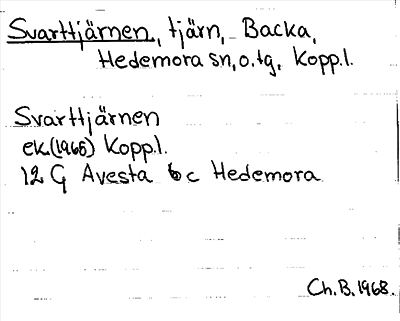 Svarttjärnen, tjärn, Backa,
Hedemora sn, o. tg, Kopp.l.
Svarttjärnen
ek.(1965) Kopp.l.
12 G Avesta b c Hedemora
Ch.B.1968.